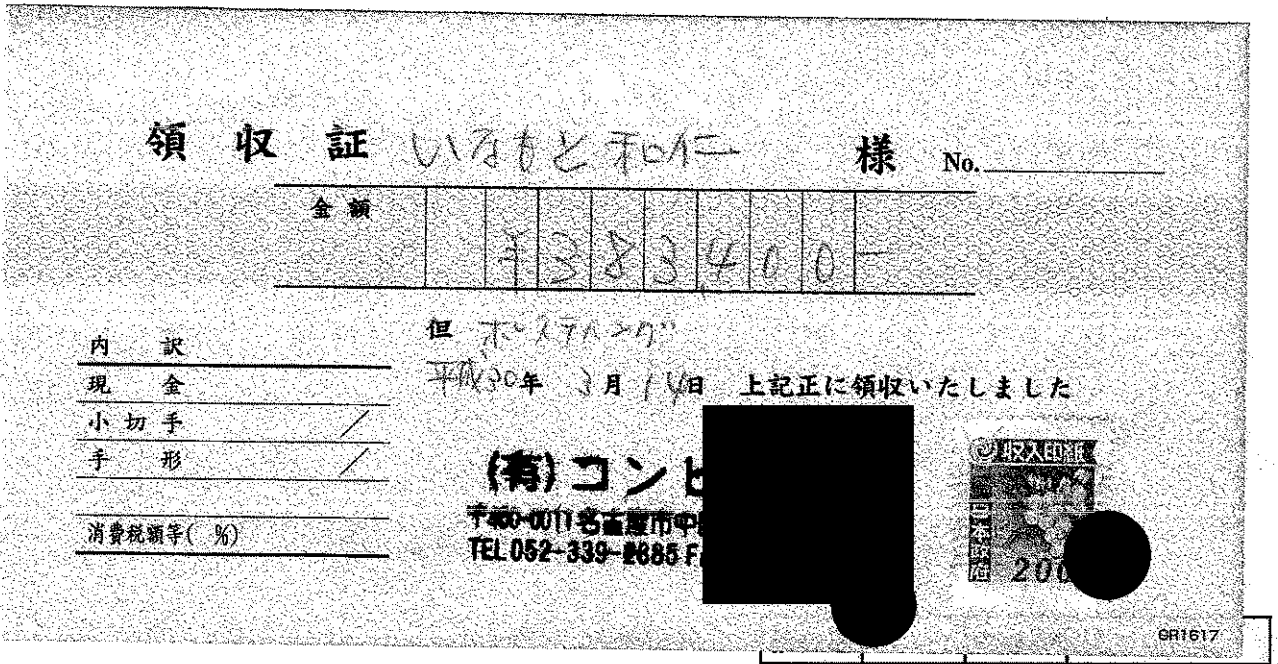 領収証 いなもと和仁 様 No.
金額 ¥383,400-
但 ポスティング
平成30年 3月14日 上記正に領収いたしました
内訳
現金
小切手 /
手形 /
消費税額等( %)
(有)コンビ
〒460-0011 名古屋市中
TEL 052-339-2685 F
収入印紙
日本政府
200
GR1617